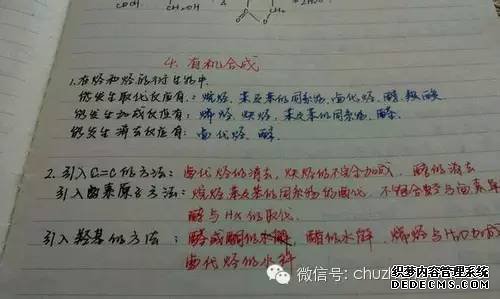 COOH CH₂OH
4. 有机合成
1. 在烃和烃的衍生物中
能发生取代反应有：烷烃、苯及苯的同系物、卤代烃、醇、羧酸
能发生加成反应有：烯烃、炔烃、苯及苯的同系物、醛
能发生消去反应有：卤代烃、醇
2. 引入C=C的方法：卤代烃的消去，炔烃的不完全加成，醇的消去
引入卤素原子方法：烷烃、苯及苯的同系物的卤代，不饱合烃与卤素单
醇与HX的取代
引入羟基的方法：醛或酮的，酯的水解，烯烃与H₂O加成
卤代烃的水解
微信号: chuzh
织梦内容管理系统
DEDECMS.COM